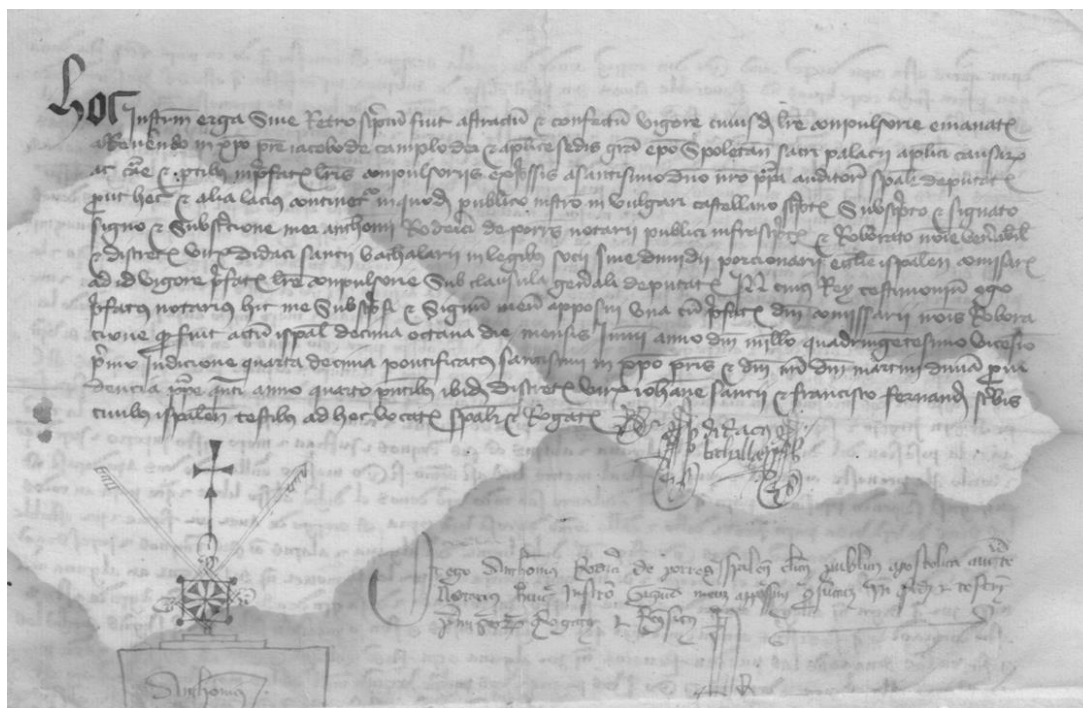 Hoc instrm erga sive retro scptum fuit astractum & confectum vigore cuiusd lre conpulsorie emanate
a Reverendo in xpo pre iacobo de camplo dei & aplice sedis gra epo Spoletan sacri palacii aplici causar
ac cãe & ptibus in pfatis lris conpulsoriis expssis a santisimo dno nro ppa auditore spali deputat
put hec & alia lacius continetur in quod publico instro in vulgari castellano scpto Subscpto & signato
signo & subscione mei anthonii Roderici de porris notarii publici infrascpt & Roborato nõie venerabil
& discret vir didaci santii bachalarii in legibus socii sive dimidii porcionarii eccłie ispalen comissar
ad id vigore pfat lre conpulsorie sub clausula generali deputat In cuius Rey testimonium ego
pfatus notarius hic me subscpsi & signum meum apposui una cum pfat dni comissarii nois Robora
cione q fuit actum ispal decima octava die mensis Junii anno dni millo quadringetesimo vicesio
pmo Indicione quarta decima pontificatus santisimi in xpo pris & dni nri dni martini divina provi
dencia ppe qnti anno quarto pntibus ibid discret vir iohane santii & francisco fernand scbis
civibus ispalen testibus ad hec vocat spalr & Rogat
didacus
bachallarius
Et ego Anthonius Roderici de porres ispalen clicus publicus apostolica aucte
Notarius huic instro signum meum apposui In fidem & testim
premissor Rogatus & Requisitus
Anthonius